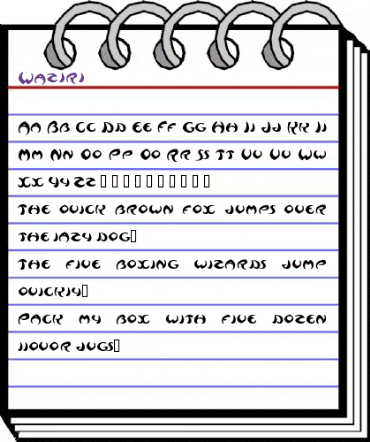 WAZIRI
AA BB CC DD EE FF GG HH II JJ KK LL
MM NN OO PP QQ RR SS TT UU VV WW
XX YY ZZ □□□□□□□□□□
THE QUICK BROWN FOX JUMPS OVER
THE LAZY DOG□
THE FIVE BOXING WIZARDS JUMP
QUICKLY□
PACK MY BOX WITH FIVE DOZEN
LIQUOR JUGS□